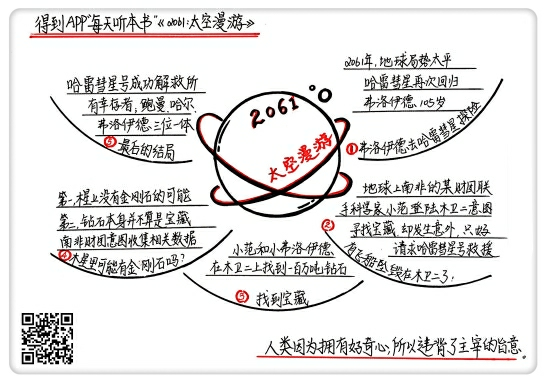 得到APP“每天听本书”《2061:太空漫游》
2061
太空漫游
2061年,地球局势太平
哈雷彗星再次回归
弗洛伊德105岁
①弗洛伊德去哈雷彗星探险
地球上南非的某财团联
手科学家小范登陆木卫二意图
寻找宝藏,却发生意外,只好
请求哈雷彗星号救援
②有飞船坠毁在木卫二了!
小范和小弗洛伊德
在木卫二上找到一百万吨钻石
③找到宝藏
第一,有金刚石的可能
第二,钻石本身并不算是宝藏
南非财团意图收集相关数据
④木星里可能有金刚石吗?
哈雷彗星号成功解救所
有幸存者,鲍曼,哈尔,
弗洛伊德三位一体
⑤最后的结局
人类因为拥有好奇心,所以违背了主宰的旨意.